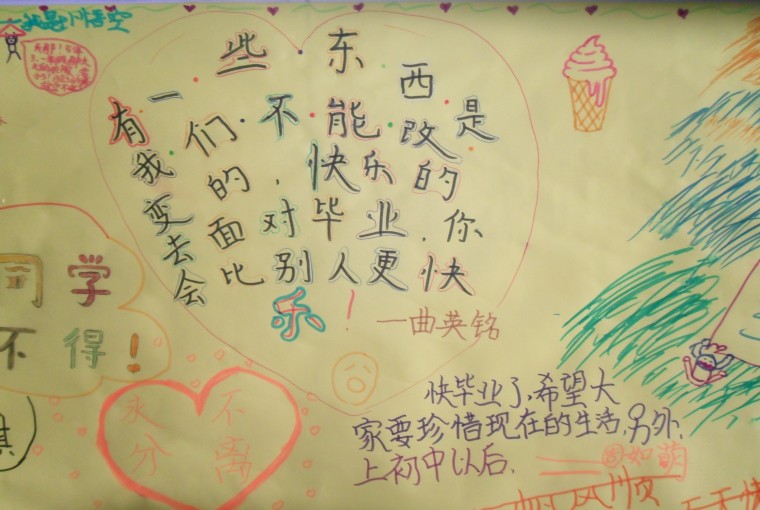 我是孙悟空
有一些东西是
我们不能改
变的,快乐的
去面对毕业,你
会比别人更快
乐!
一曲英铭
同学
不得!
永不
分离
快毕业了,希望大
家要珍惜现在的生活,另外,
上初中以后,
如萌
一帆风顺
天天快